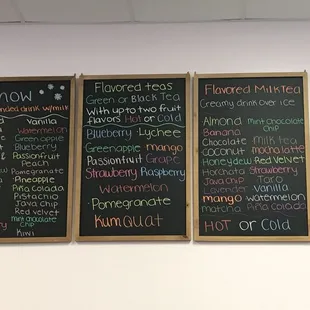 now
nded drink w/milk
Vanilla
Watermelon
Green apple
Blueberry
Passionfruit
Peach
Pomegranate
Pineapple
Piña colada
Pistachio
Java chip
Red velvet
mint chocolate
chip
Kiwi
Flavored teas
Green or Black Tea
With up to two fruit
flavors Hot or Cold
Blueberry Lychee
Greenapple mango
Passionfruit Grape
Strawberry Raspberry
Watermelon
Pomegranate
KumQuat
Flavored Milk Tea
Creamy drink over ice
Almond mint chocolate
chip
Banana
Chocolate Milk tea
coconut mocha latte
Honeydew Red Velvet
Horchata Strawberry
Java chip Taro
Lavender vanilla
mango watermelon
matcha Piña Colada
HOT or Cold